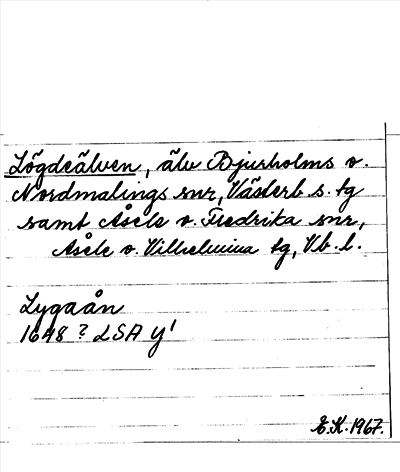 Lögdeälven, älv Bjurholms o.
Nordmalings snr, Västerb s. tg
samt Åsele o. Fredrika snr,
Åsele o. Vilhelmina tg, Vb. l.
Lygaån
1648 ? LSA y'
E.K. 1967.